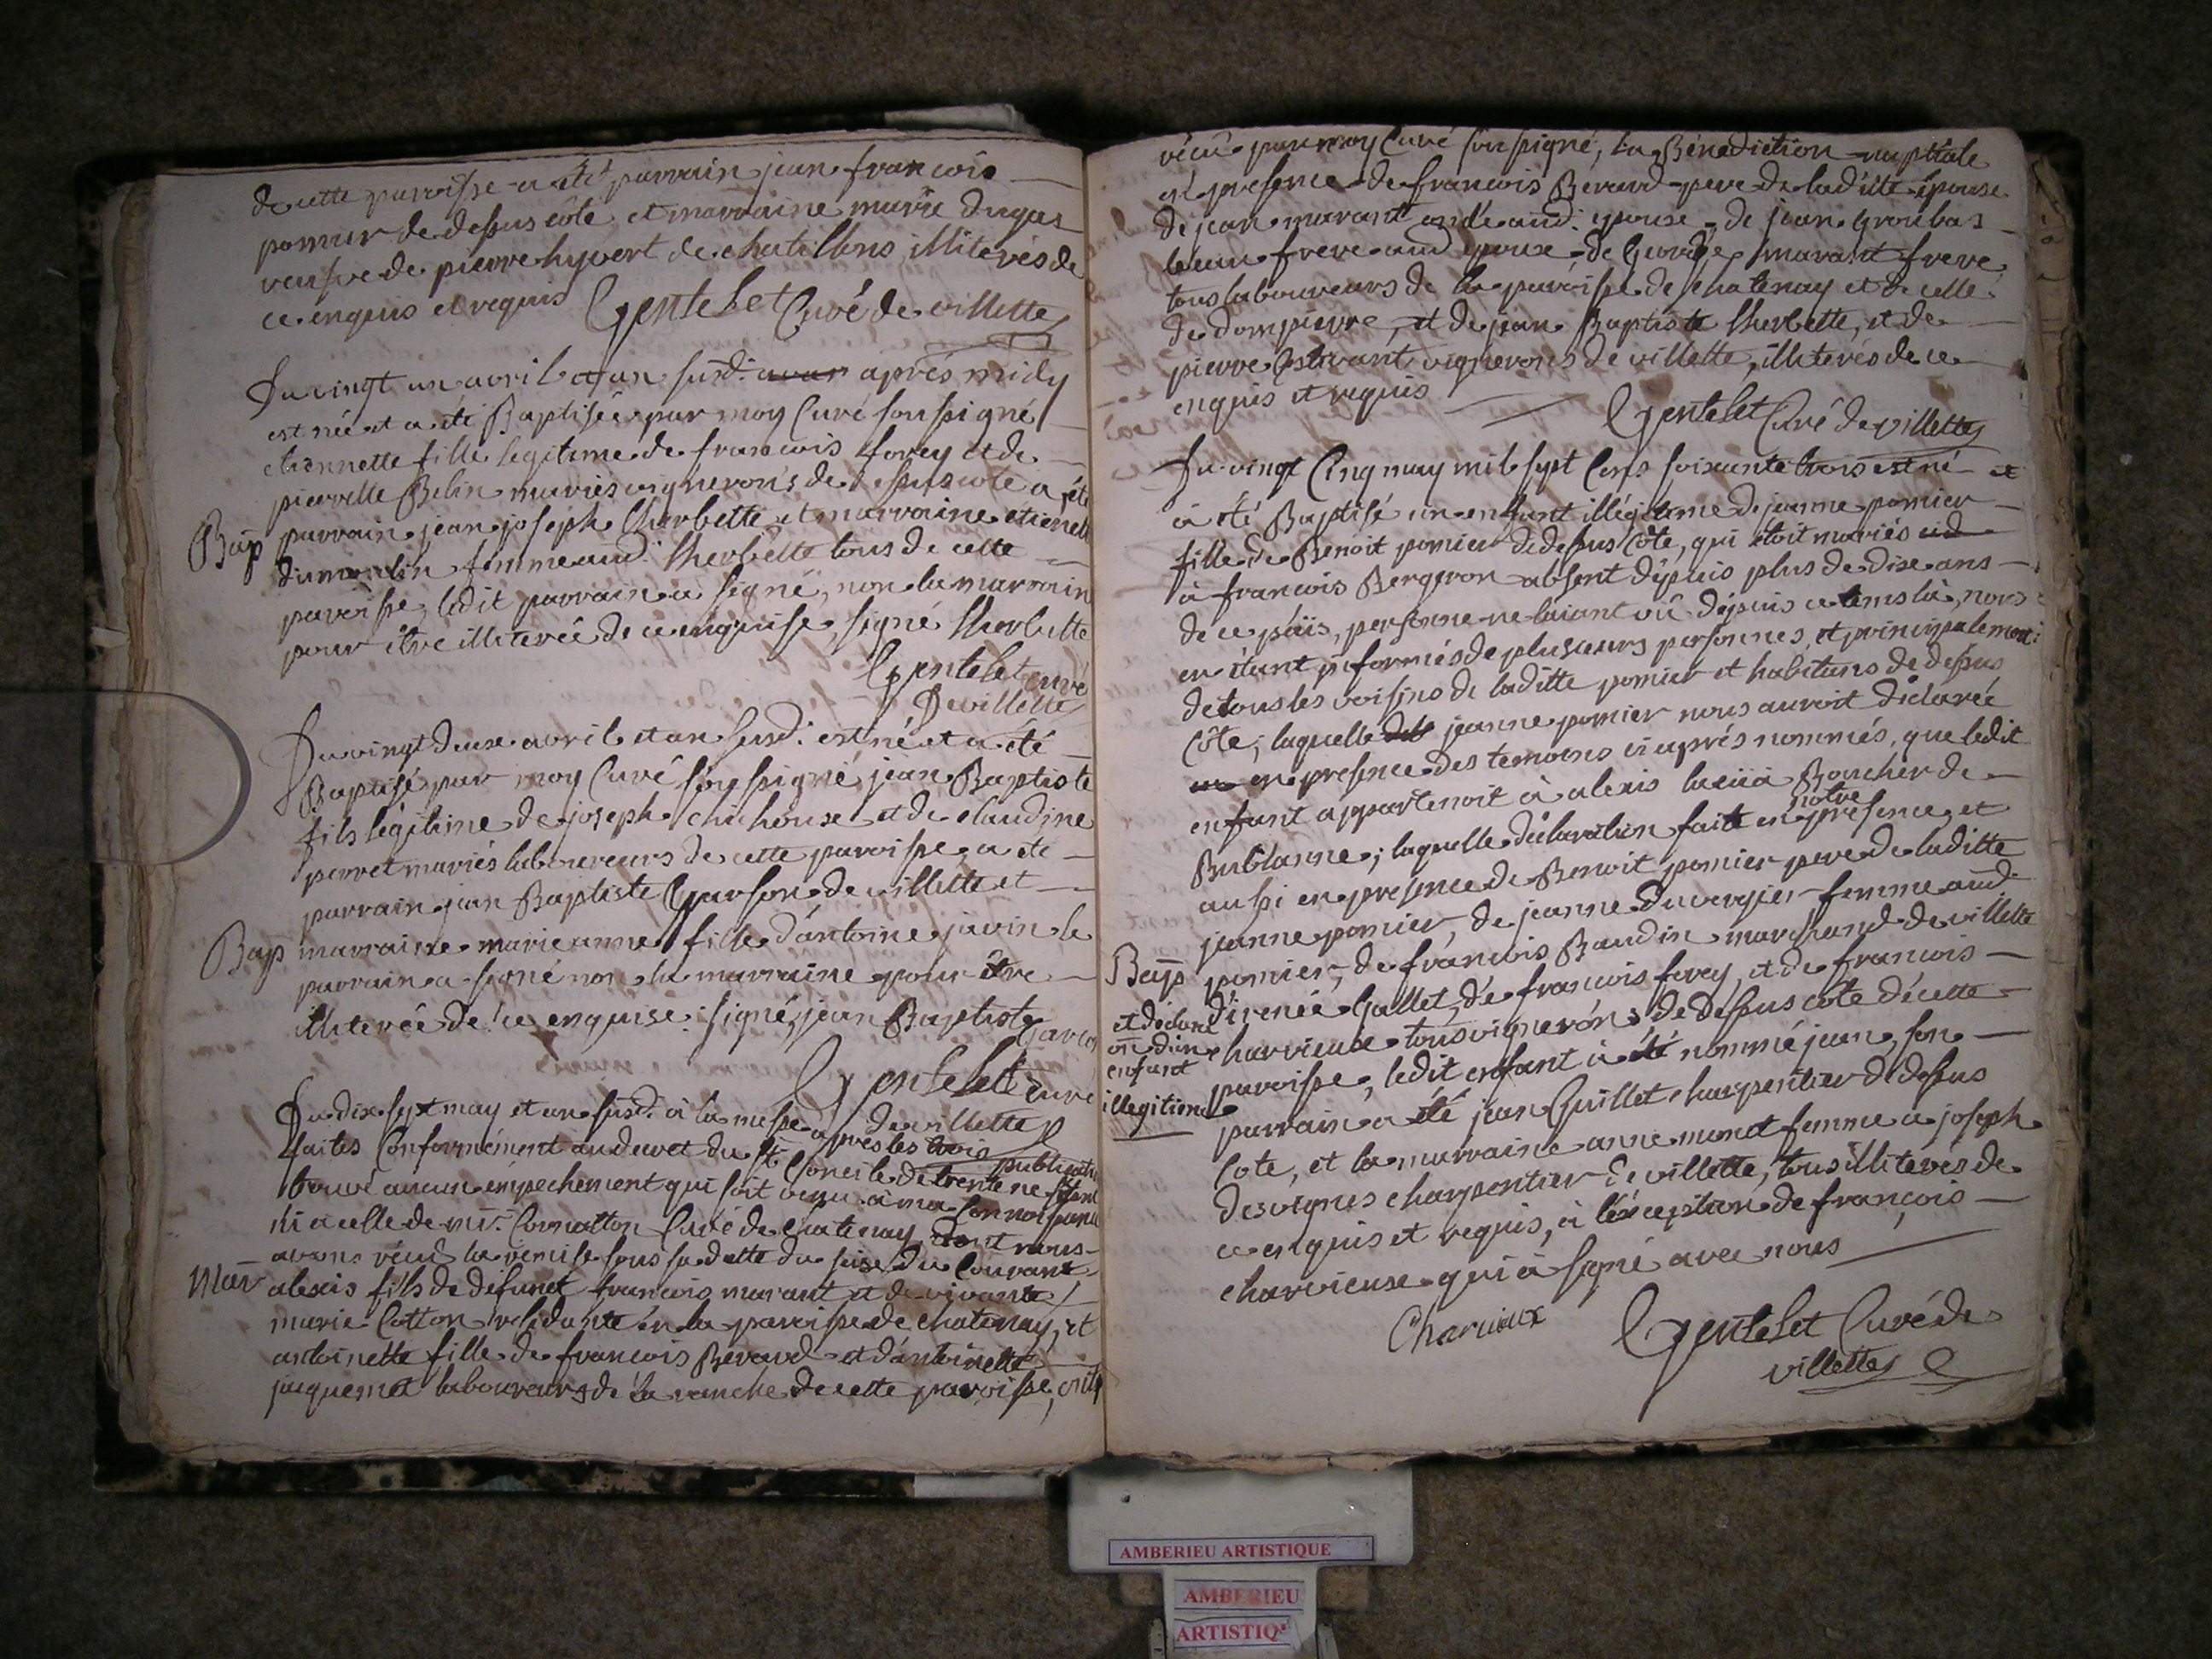 de cette paroisse a été parrain jean francois
pomier de dessus côté et marraine marie dugas
veufve de pierre hyvert de chatillons illiterés de
ce enquis et requis Gentelet Curé de villette
Du vingt un avril et an susd. après midy
est née et a été Baptisée par moy Curé soussigné
etiennette fille legitime de francois forey et de
pierrette Belin mariés vignerons de dessus cote a été
Bap parrain jean joseph Cherbette et marraine etienette
dumoulin femme aud. Cherbette tous de cette
paroisse, ledit parrain a signé, non la marraine
pour être illiterée de ce enquise, signé Cherbette
Gentelet curé
De villette
Du vingt deux avril et an susd. est né et a été
Baptisé par moy Curé soussigné jean Baptiste
fils légitime de joseph chichoux et de claudine
perret mariés laboureurs de cette paroisse, a été
parrain jean Baptiste Garson de villette et
Bap marraine marie anne fille d'antoine javin le
parrain a signé non la marraine pour être
illiterée de ce enquise. signé, jean Baptiste
Gentelet curé
de villette
Du dix sept may et an susd. à la messe après les trois publications
faites Conformément au decret du St Concile de trente ne s'étant
trouvé aucun empechement qui soit venu à ma Connoissance
ni a celle de mr. Cornatton Curé de chatenay, dont nous
avons réçu la remise sous sa datte du seise du Courant
Mar alexis fils de défunct francois marant et de vivante
marie Cotton résidante en la paroisse de chatenay, et
antoinette fille de francois Berard et d'antoinette
juquemet laboureurs de la ranche de cette paroisse, ont
réçu par moy Curé soussigné, la Bénédiction nuptiale
en presence de francois Berard pere de laditte épouse
de jean marant oncle aud. epouse de jean Groubas
beau frere aud epoux de George marant frere,
tous laboureurs de la paroisse de chatenay et de celle
de dompierre, et de jean Baptiste Cherbette, et de
pierre vignerons de villette, illiterés de ce
enquis et requis
Gentelet Curé de villette
Du vingt Cinq may mil sept Cens soixante trois est né et
à été Baptisé un enfant illégitime de jeanne pomier
fille de Benoit pomier de dessus Côte, qui étoit mariés
à francois Bergeron absent dépuis plus de dix ans
de ce päis, personne ne laiant vû dépuis ce tems là, nous
en étant informés de plusieurs personnes, et principalement
de tous les voisins de laditte pomier et habitans de dessus
Côte; laquelle jeanne pomier nous auroit déclarée
en presence des temoins ci après nommés, que ledit
enfant appartenoit à alexis Boucher de
Bublanne; laquelle déclaration faite en notre presence, et
aussi en presence de Benoit pomier pere de laditte
jeanne pomier, de jeanne Duvergier femme aud.
Bap pomier, de francois Baudin marchand de villette
et declaraon d'un enfant illegitime
d'irenée Gallet, de francois forey, et de francois
charvieux tous vignerons de dessus côte de cette
paroisse, ledit enfant à été nommé jean, son
parrain a été jean Guillet charpentier de dessus
Cote, et la marraine anne monet femme a joseph
desvignes charpentier de villette, tous illiterés de
ce enquis et requis, à l'exception de françois
charvieux qui à signé avec nous
Charvieux Gentelet Curé de
villette
AMBERIEU ARTISTIQUE
AMBERIEU
ARTISTIQ